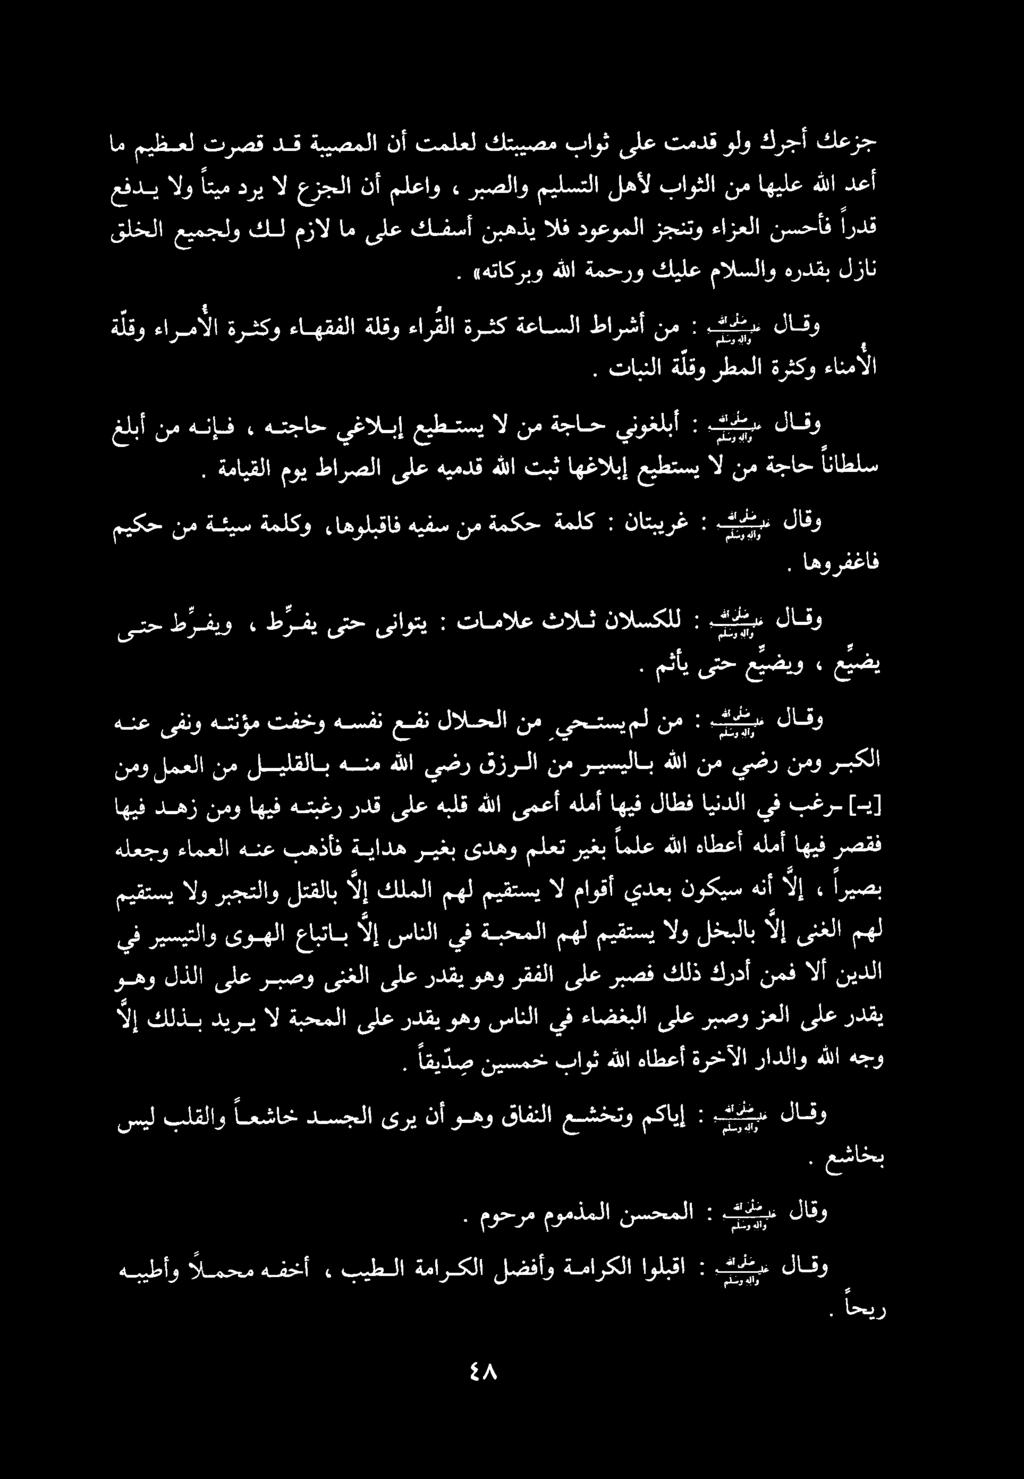 جزعك أجرك ولو قدمت على ثواب مصيبتك لعلمت أن المصيبة قد قصرت لعظيم ما
أعد الله عليها من الثواب لأهل التسليم والصبر ، واعلم أن الجزع لا يرد ميتاً ولا يدفع
قدراً فأحسن العزاء وتنجز الموعود فلا يذهبن أسفك على ما لازم لك ولجميع الخلق
نازل بقدره والسلام عليك ورحمة الله وبركاته» .
وقال صلى الله عليه وآله وسلم : من أشراط الساعة كثرة القُراء وقلة الفقهاء وكثرة الأُمراء وقلّة
الأُمناء وكثرة المطر وقلّة النبات .
وقال صلى الله عليه وآله وسلم : أبلغوني حاجة من لا يستطيع إبلاغي حاجته ، فإنه من أبلغ
سلطاناً حاجة من لا يستطيع إبلاغها ثبت الله قدميه على الصراط يوم القيامة .
وقال صلى الله عليه وآله وسلم : غريبتان : كلمة حكمة من سفيه فاقبلوها، وكلمة سيئة من حكيم
فاغفروها .
وقال صلى الله عليه وآله وسلم : للكسلان ثلاث علامات : يتوانى حتى يفرِّط ، ويفرِّط حتى
يضيِّع ، ويضيِّع حتى يأثم .
وقال صلى الله عليه وآله وسلم : من لم يستحي من الحلال نفع نفسه وخفت مؤنته ونفى عنه
الكبر ومن رضي من الله باليسير من الرزق رضي الله منه بالقليل من العمل ومن
[يـ] ـرغب في الدنيا فطال فيها أمله أعمى الله قلبه على قدر رغبته فيها ومن زهد فيها
فقصر فيها أمله أعطاه الله علماً بغير تعلم وهدى بغير هداية فأذهب عنه العماء وجعله
بصيراً ، إلاّ أنه سيكون بعدي أقوام لا يستقيم لهم الملك إلاّ بالقتل والتجبر ولا يستقيم
لهم الغنى إلاّ بالبخل ولا يستقيم لهم المحبة في الناس إلاّ باتباع الهوى والتيسير في
الدين ألا فمن أدرك ذلك فصبر على الفقر وهو يقدر على الغنى وصبر على الذل وهو
يقدر على العز وصبر على البغضاء في الناس وهو يقدر على المحبة لا يريد بذلك إلاّ
وجه الله والدار الآخرة أعطاه الله ثواب خمسين صِدّيقاً .
وقال صلى الله عليه وآله وسلم : إياكم وتخشع النفاق وهو أن يرى الجسد خاشعاً والقلب ليس
بخاشع .
وقال صلى الله عليه وآله وسلم : المحسن المذموم مرحوم .
وقال صلى الله عليه وآله وسلم : اقبلوا الكرامة وأفضل الكرامة الطيب ، أخفه محملاً وأطيبه
ريحاً .
٤٨